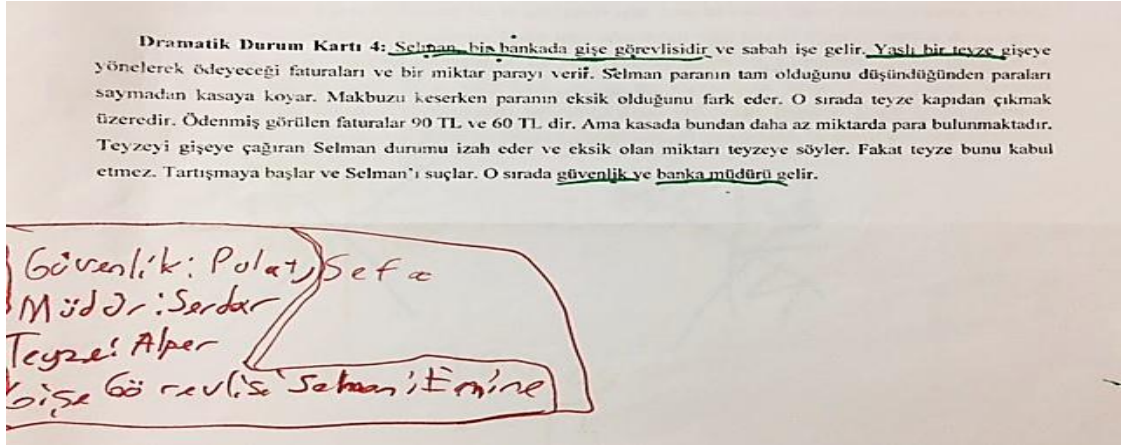 Dramatik Durum Kartı 4: Selman, bir bankada gişe görevlisidir ve sabah işe gelir. Yaşlı bir teyze gişeye
yönelerek ödeyeceği faturaları ve bir miktar parayı verir. Selman paranın tam olduğunu düşündüğünden paraları
saymadan kasaya koyar. Makbuzu keserken paranın eksik olduğunu fark eder. O sırada teyze kapıdan çıkmak
üzeredir. Ödenmiş görülen faturalar 90 TL ve 60 TL dir. Ama kasada bundan daha az miktarda para bulunmaktadır.
Teyzeyi gişeye çağıran Selman durumu izah eder ve eksik olan miktarı teyzeye söyler. Fakat teyze bunu kabul
etmez. Tartışmaya başlar ve Selman'ı suçlar. O sırada güvenlik ve banka müdürü gelir.
Güvenlik: Polat, Sefa
Müdür: Serdar
Teyze: Alper
Gişe Görevlisi Selman: Emine